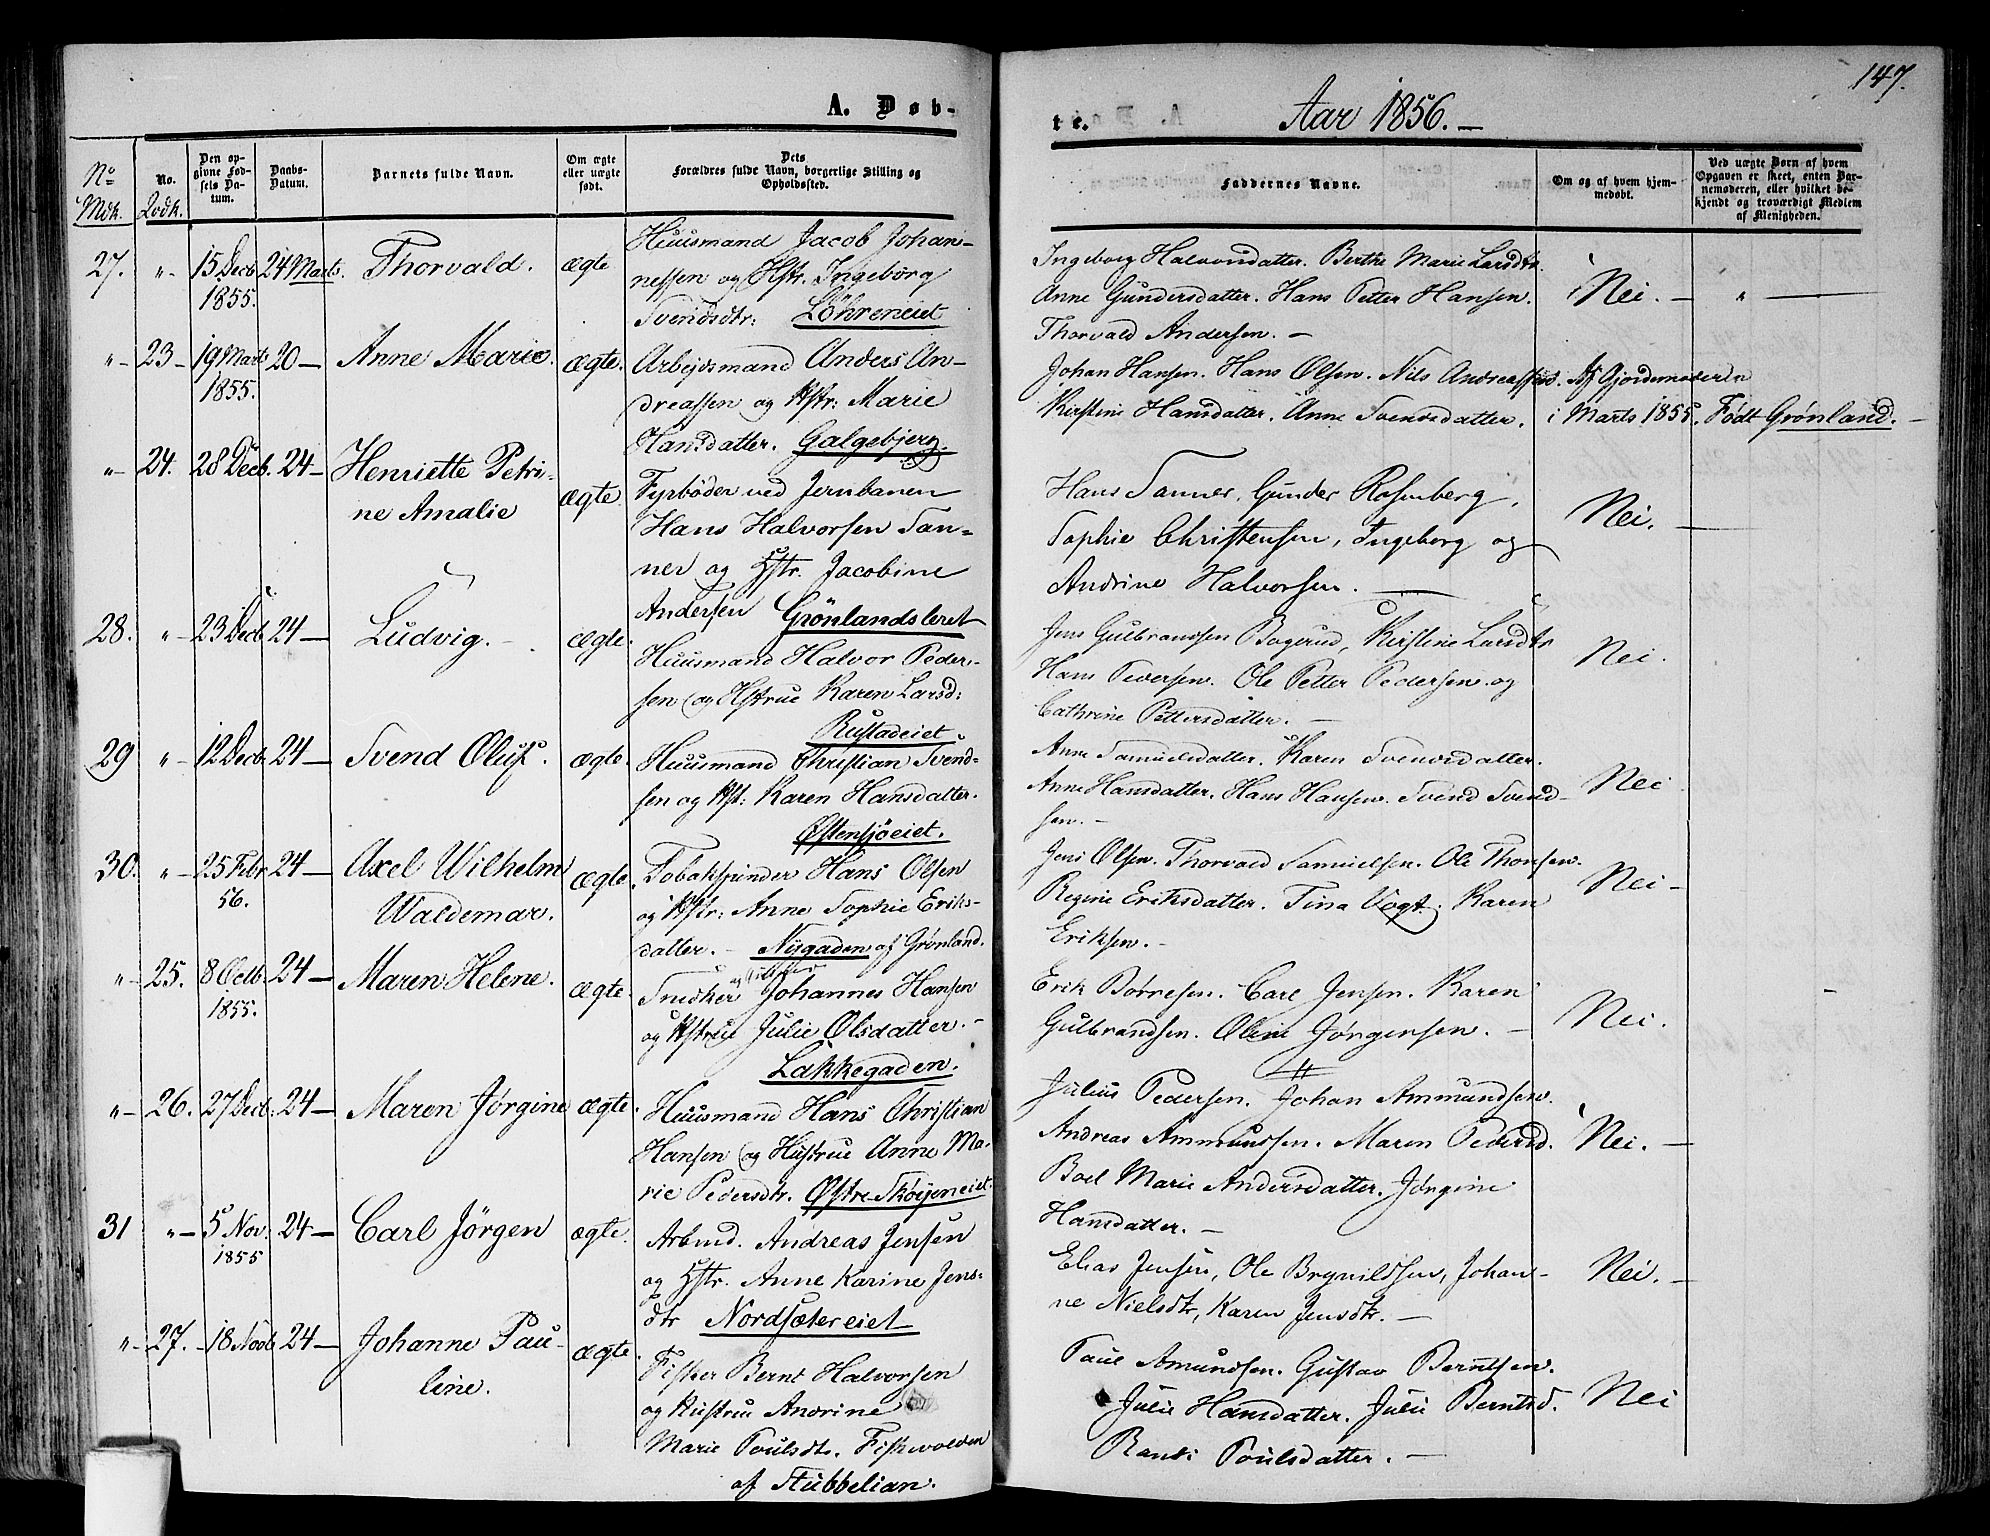 147.
A. Døb-
te.
Aar 1856.—
No Mdk.
No. Qvdk.
Den op-
givne Fød-
sels Da-
tum.
Daabs-
Datum.
Barnets fulde Navn.
Om ægte
eller uægte
født.
Dets
Forældres fulde Navn, borgerlige Stilling og
Opholdssted.
Faddernes Navne.
Om og af hvem hjem-
medøbt.
Ved uægte Børn af hvem
Opgaven er skeet, enten Bar-
nemoderen, eller hvilket be-
kjendt og troværdigt Medlem
af Menigheden.
27. " 15 Decb 24 Marts. Thorvald. ægte Huusmand Jacob Johan-
1855. nessen og Hstr. Ingeborg
Svendsdtr: Löhreneiet
Ingeborg Halvorsdatter. Berthe Marie Larsdtr.
Anne Gundersdatter. Hans Petter Hansen. Nei. — "
Thorvald Andersen. —
" 23 19 Marts 20 — Anne Marie. ægte. Arbejdsmand Anders An-
1855. dreassen og Hstr: Marie
Hansdatter. Galgebjerg.
Johan Hansen. Hans Olsen. Nils Andreassen. Af Gjordemoderen
Kirstine Hansdatter. Anne Svendsdatter. i Marts 1855. Født Grønland. —
" 24. 28 Decb. 24 — Henriette Petri-
ne Amalie ægte. Fyrbøder ved Jernbanen
Hans Halvorsen San-
ner og Hstr. Jacobine
Andersen Grönlandsleret
Hans Sanner, Gunder Rosenberg,
Sophie Christensen, Ingeborg og Nei. —
Andrine Halvorsen. —
28. " 23 Decb. 24 — Ludvig. — ægte. Huusmand Halvor Peder-
sen og Hstrue Karen Larsd:
Rustadeiet
Jens Gulbrandsen Bogerud, Kirstine Larsdtr
Hans Pedersen. Ole Petter Pedersen og Nei.
Cathrine Pettersdatter. —
29 " 12 Decb. 24 — Svend Oluf. ægte. Huusmand Christian Svend-
sen og Hst: Karen Hansdatter.
Østensjøeiet.
Anne Samuelsdatter. Karen Svendsdatter.
Anne Hansdatter. Hans Hansen. Svend Svend- Nei
sen. —
30. " 25 Febr 24 — Axel Wilhelm
56. Waldemar. ægte. Tobakspinder Hans Olsen
og Hstr: Anne Sophie Eriks-
datter. — Nygaden af Grønland.
Jens Olsen. Thorvald Samuelsen. Ole Thonsen.
Regine Eriksdatter. Tina Vogt. Karen Nei —
Eriksen. —
" 25. 8 Octb. 24 — Maren Helene. ægte. Snedker Johannes Hansen
1855. og Hstrue Julie Olsdatter. —
Lakkegaden.
Erik Børresen. Carl Jensen. Karen
Gulbrandsen. Oline Jørgensen. — Nei.
" 26. 27 Decb. 24 — Maren Jørgine ægte. Huusmand Hans Christian
Hansen og Hustrue Anne Ma-
rie Pedersdtr. Østre Skøyeneiet.
Julius Pedersen. Johan Ammundsen.
Andreas Ammundsen. Maren Pedersd. Nei. —
Boel Marie Andersdatter. Jørgine
Hansdatter. —
31 " 5 Nov. 24 — Carl Jörgen ægte. Arbmd. Andreas Jensen
1855 og Hstr. Anne Karine Jens-
dtr Nordsætereiet
Elias Jensen, Ole Brynildsen, Johan- Nei. —
ne Nielsdtr, Karen Jensdtr. —
" 27. 18 Novb 24 — Johanne Pau-
line. ægte. Fisker Bernt Halvorsen
og Hustrue Andrine
Marie Poulsdtr. Fiskvolden
af Stubbelian.
Paul Amundsen. Gustav Berntsen.
Julie Hansdatter. Julie Berntsd. Nei
Randi Poulsdatter. —